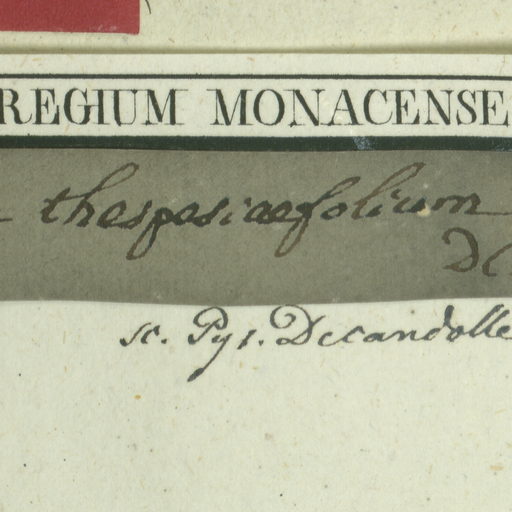 REGIUM MONACENSE
thespesiaefolium
DC
sc. Pyr. Decandolle